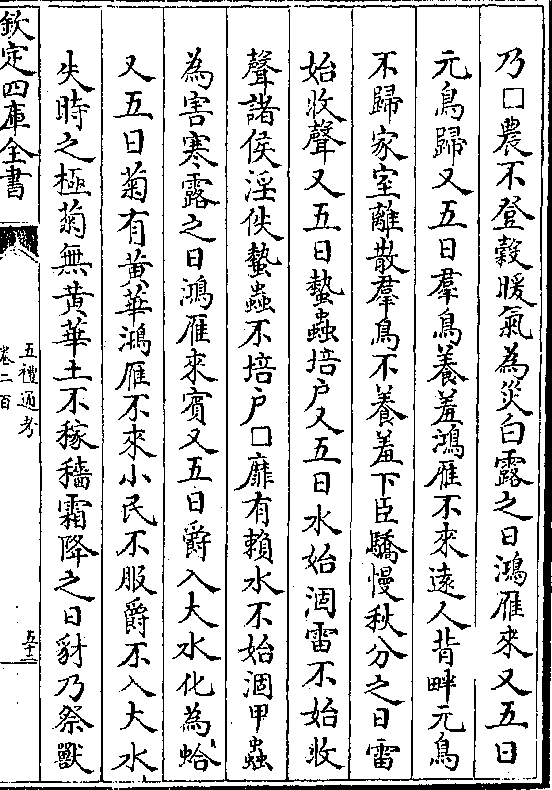 乃□農不登穀暖氣為災白露之日鴻雁来又五日
元鳥歸又五日羣鳥養羞鴻雁不來遠人背畔元鳥
不歸家室離散羣鳥不養羞下臣驕慢秋分之日雷
始收聲又五日蟄蟲培户又五日水始涸雷不始收
聲諸侯淫佚蟄蟲不培户□靡有賴水不始涸甲蟲
為害寒露之日鴻雁來賓又五日爵入大水化為蛤
又五日菊有黃華鴻雁不來小民不服爵不入大水
失時之極菊無黃華土不稼穡霜降之日豺乃祭獸
欽定四庫全書
五禮通考
卷二百
五十三